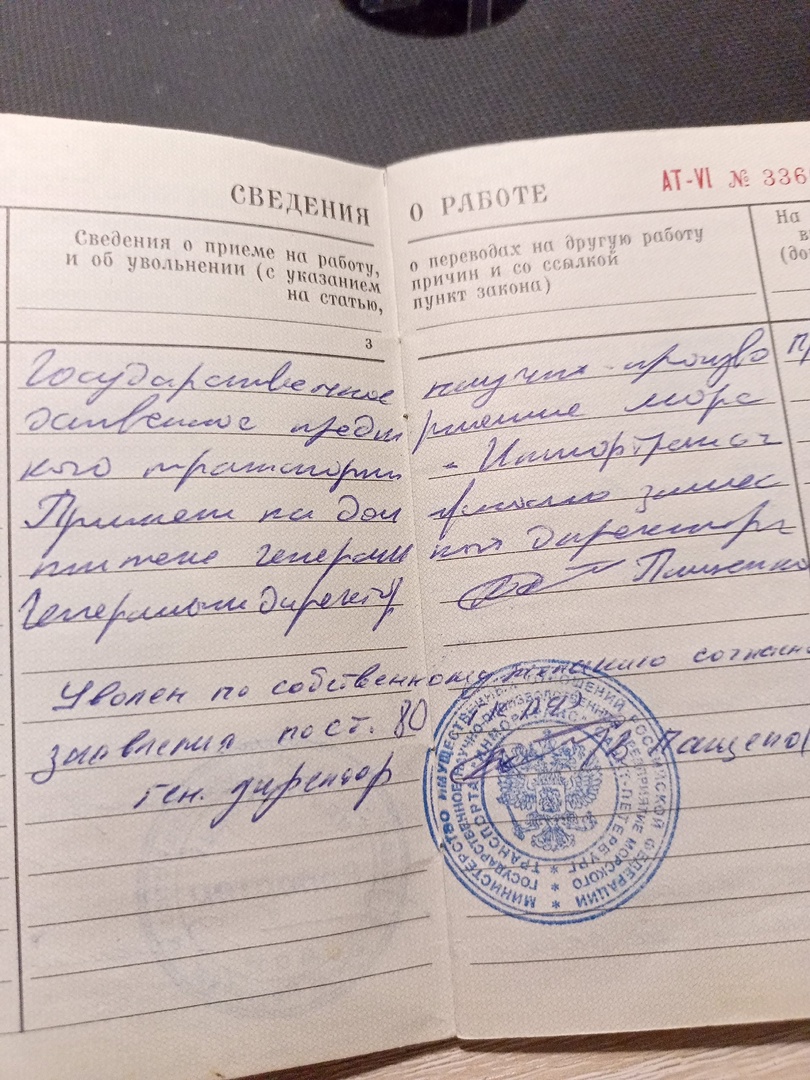 СВЕДЕНИЯ О РАБОТЕ
АТ-VI № 336
Сведения о приеме на работу, о переводах на другую работу
и об увольнении (с указанием причин и со ссылкой
на статью, пункт закона)
На
в
(до
3
Государственное научно-произво
дственное предп риятие морс
кого транспорта -
Принят на дол жность замес
тителя генераль ного директора
Генеральный директор Пащенко
Уволен по собственному желанию согласно
заявления по ст. 80
ген. директор А В Пащенко
МИНИСТЕРСТВО ИМУЩЕСТВЕННЫХ ОТНОШЕНИЙ РОССИЙСКОЙ ФЕДЕРАЦИИ
ГОСУДАРСТВЕННОЕ НАУЧНО-ПРОИЗВОДСТВЕННОЕ ПРЕДПРИЯТИЕ МОРСКОГО ТРАНСПОРТА